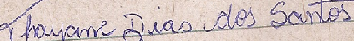 Thayane Dias dos Santos